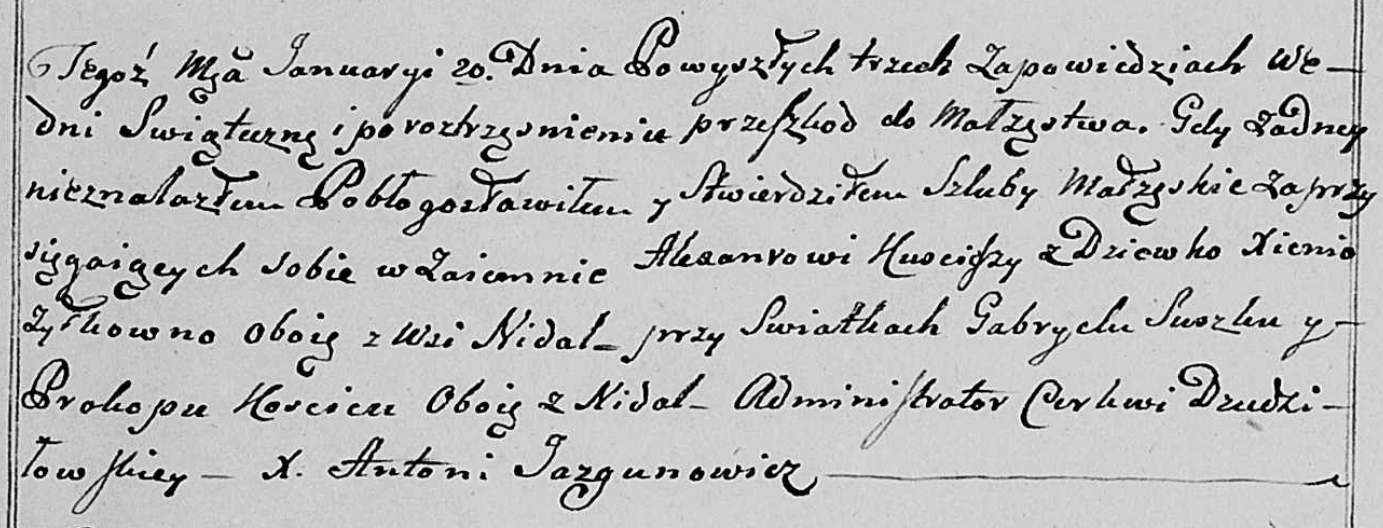 Tegoż Mça Januaryi 20. Dnia Powyszłych trzech Zapowiedziach we—
dni Swiątuznę i po roztrzęsnieniu przeszkod do Małzęstwa. Gdy żadney
nieznalazłem Pobłogosławiłem y Stwierdziłem Szluby Małzęskie zaprzy
sięgaiących sobie wzaiemnie Alexanrowi z Dziewko Xienio
Zyłkowno Oboię z Wsi Nidal— przy Swiatkach Gabryelu Suszku y—
Prokopu Hoscicu Oboię z Nidal— Administrator Cerkwi Dzudzi—
łowskiey — X. Antoni Jazgunowicz